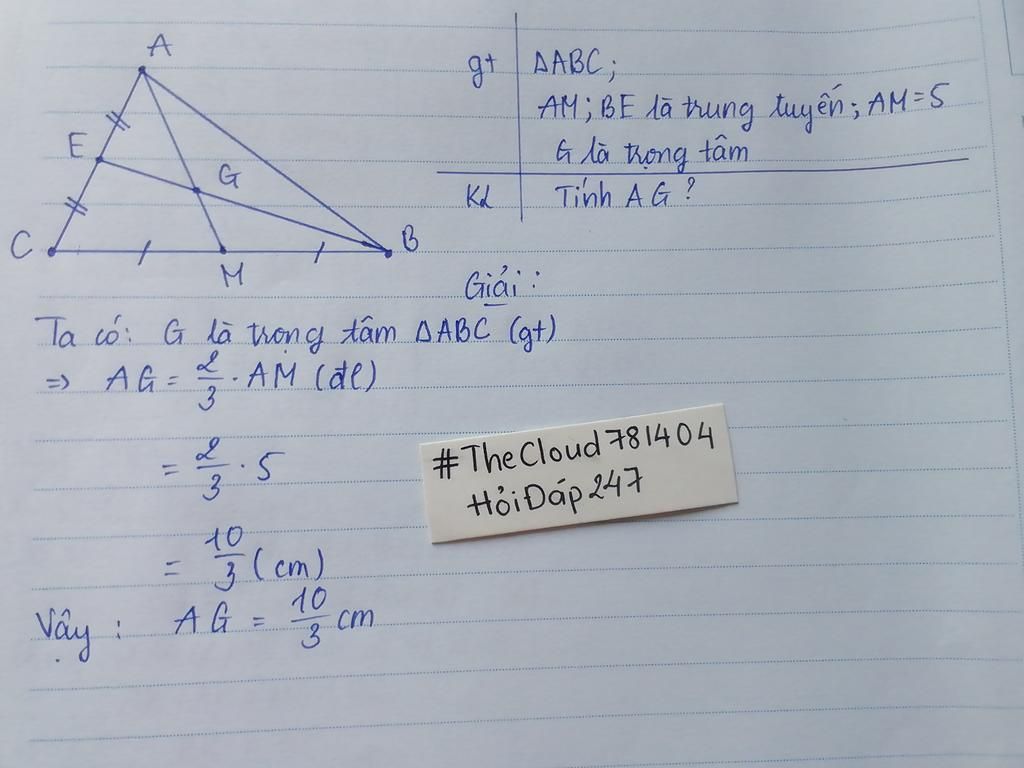 A
E
G
C
M
B
gt
ΔABC;
AM; BE là trung tuyến; AM=5
G là trọng tâm
KL
Tính AG?
Giải:
Ta có: G là trọng tâm ΔABC (gt)
=> AG = 2/3 . AM (đl)
= 2/3 . 5
= 10/3 (cm)
Vậy: AG = 10/3 cm
#TheCloud781404
HỏiĐáp247